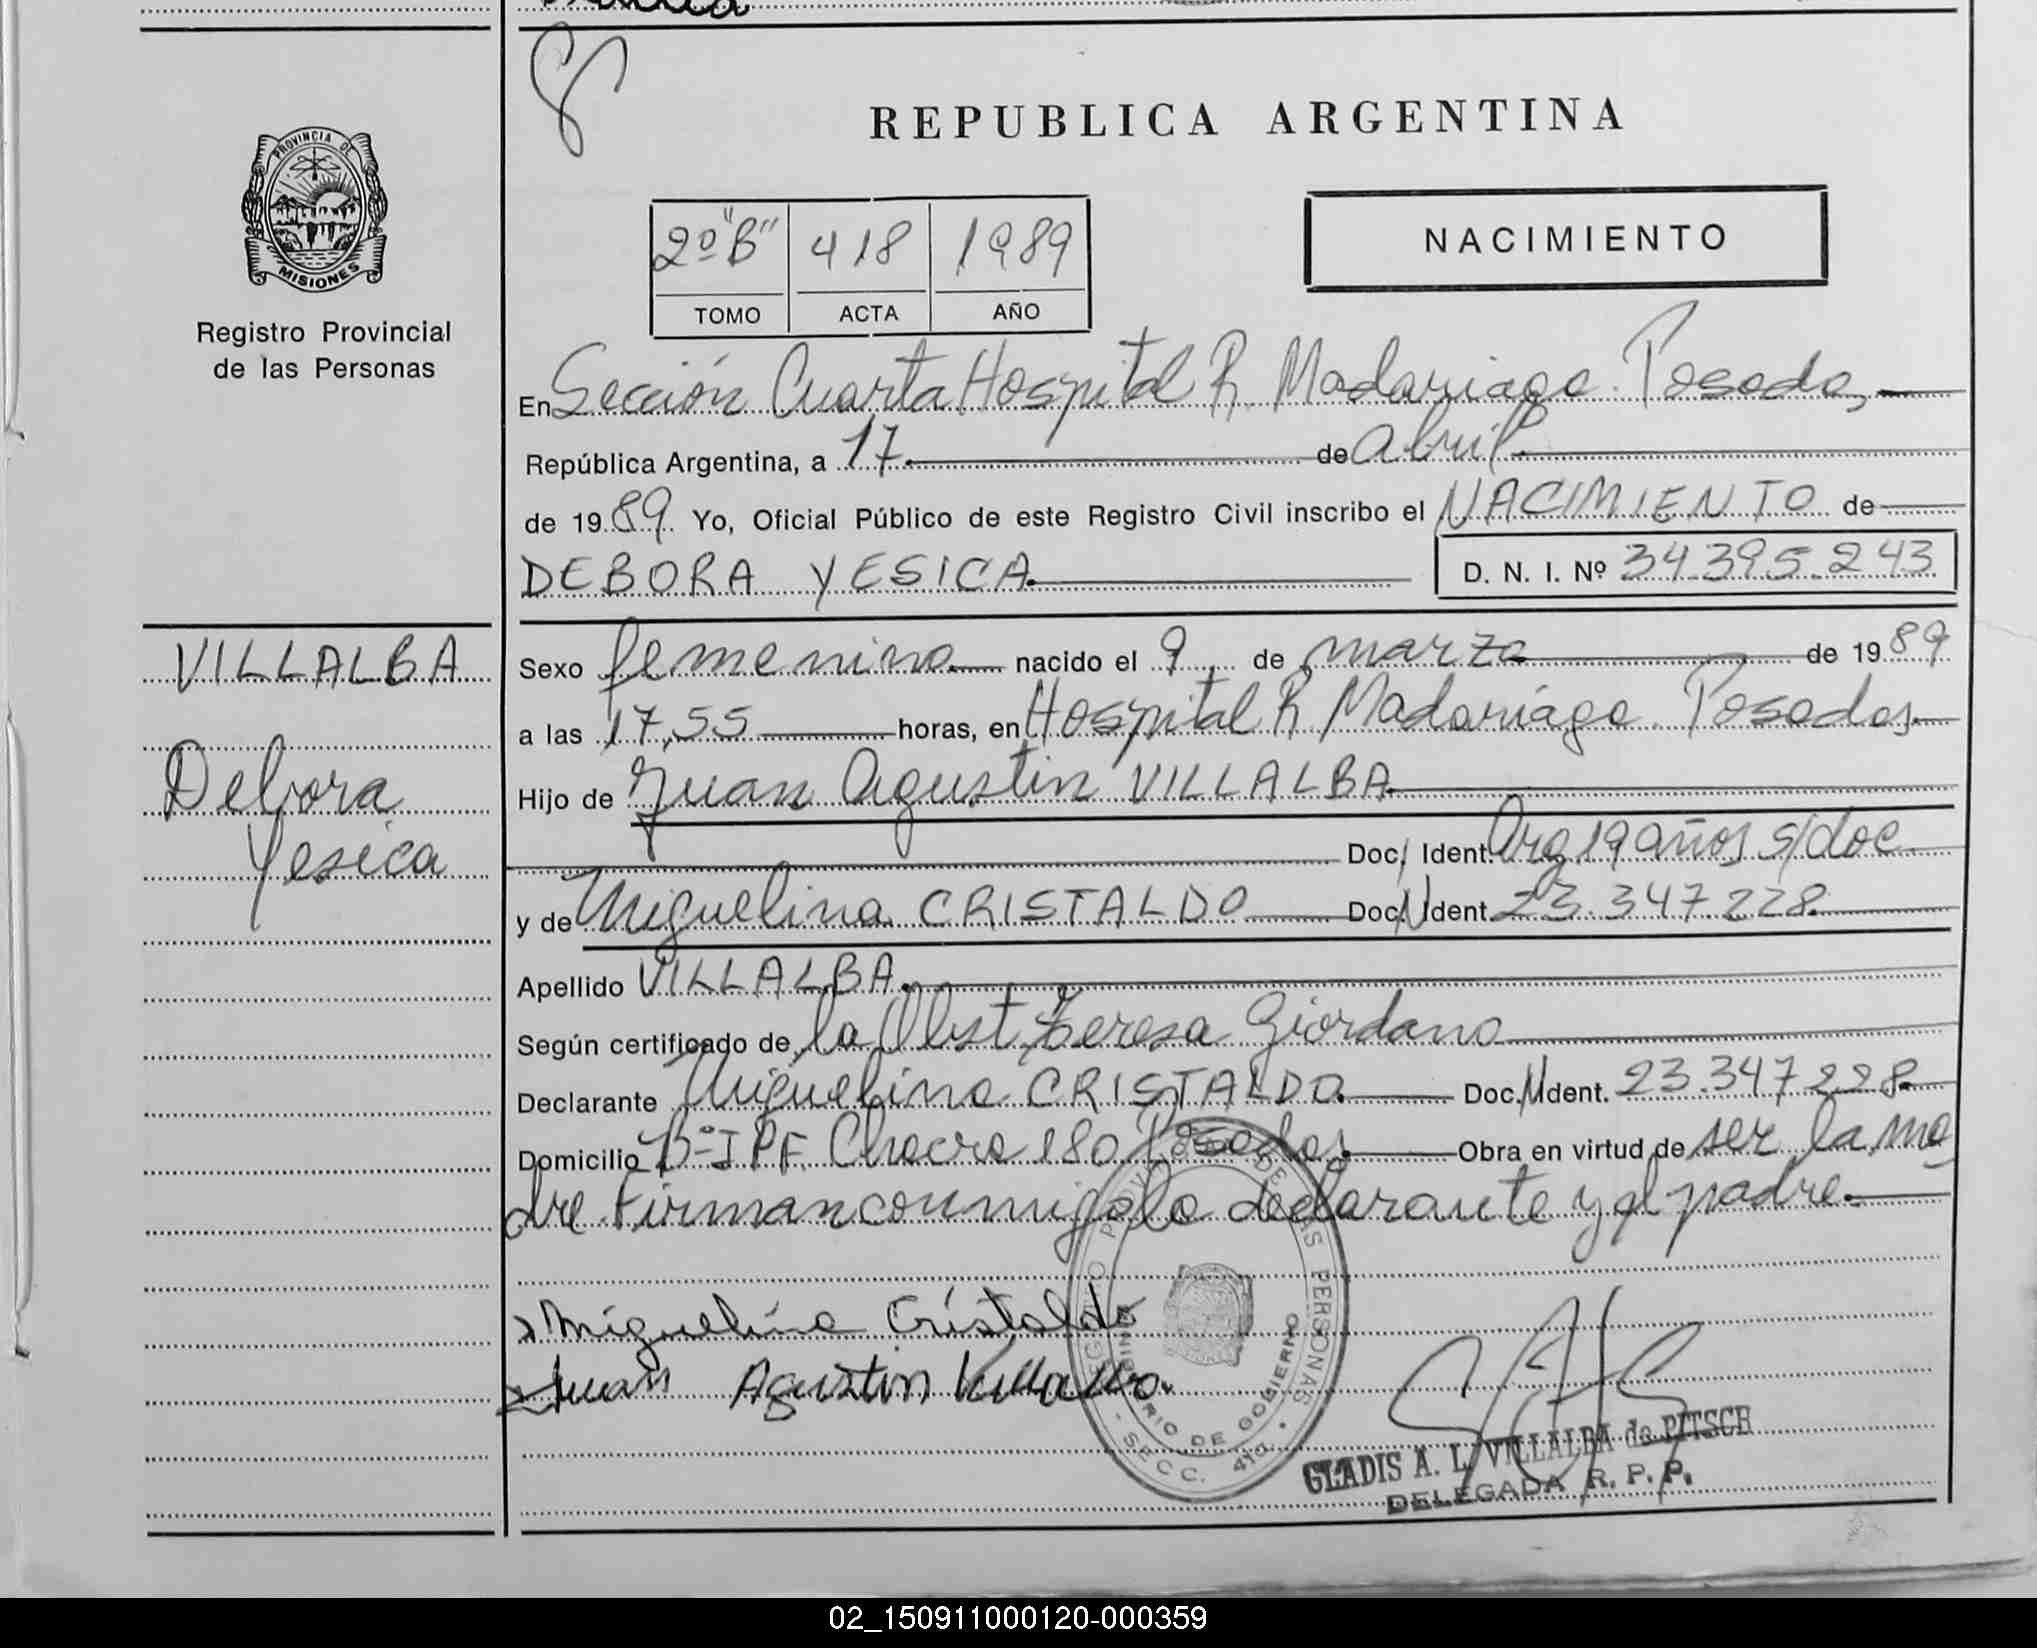 REPUBLICA ARGENTINA
PROVINCIA DE
MISIONES
Registro Provincial
de las Personas
2º "B" 418 1989
TOMO ACTA AÑO
NACIMIENTO
En Sección Cuarta Hospital R. Madariaga. Posadas
República Argentina, a 17 de abril
de 1989 Yo, Oficial Público de este Registro Civil inscribo el NACIMIENTO de
DEBORA YESICA D. N. I. Nº 34.395.243
VILLALBA
Debora
Yesica
Sexo femenino nacido el 9 de marzo de 1989
a las 17,55 horas, en Hospital R. Madariaga. Posadas
Hijo de Juan Agustin VILLALBA
Doc. Ident. Arg 19 años s/doc
y de Miguelina CRISTALDO Doc. N Ident. 23.347.228
Apellido VILLALBA
Según certificado de la Obst. Teresa Giordano
Declarante Miguelina CRISTALDO Doc. N Ident. 23.347.228
Domicilio Bº I.P.F. Chacra 180 Posadas Obra en virtud de ser la ma
dre. Firman conmigo la declarante y el padre.
Miguelina Cristaldo
Juan Agustin Villalba
REGISTRO PROVINCIAL DE LAS PERSONAS
MINISTERIO DE GOBIERNO
SECC. 4ta.
GLADIS A. L. VILLALBA de PITSCH
DELEGADA R. P. P.
02_150911000120-000359